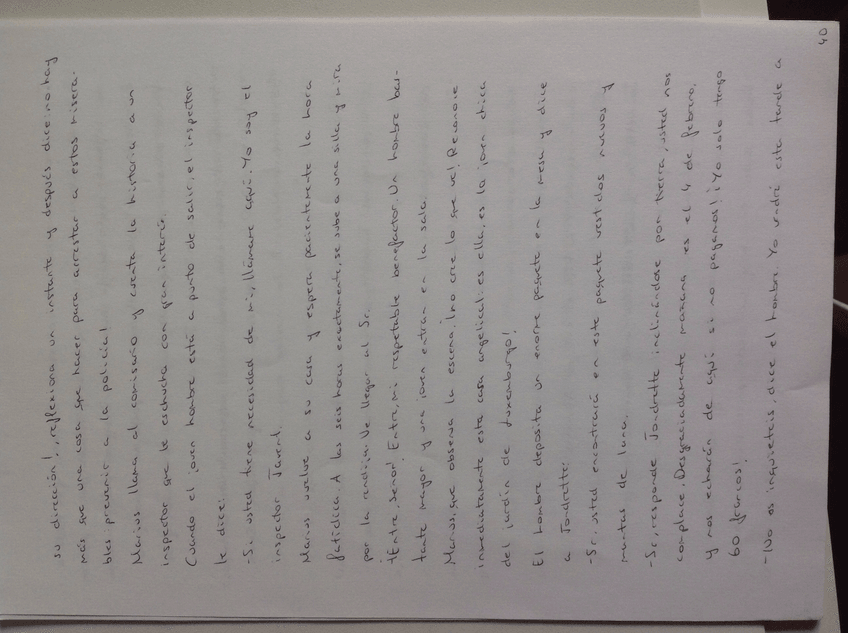 su dirección!, reflexiona un instante y después dice: no hay
más que una cosa que hacer para arrestar a estos misera-
bles prevenir a la policía!
Marius llama al comisario y cuenta la historia a un
inspector que le eschucha con gran interés.
Cuando el joven hombre está a punto de salir, el inspector
le dice:
-Sr. usted tiene necesidad de mi, llámare aquí. Yo soy el
inspector Javert.
Marius vuelve a su casa y espera pacientemente la hora
fatídica. A las seis horas exactamente, se sube a una silla y mira
por la rendija. Ve llegar al Sr.
¡Entre, señor! Entre, mi respetable benefactor. Un hombre bas-
tante mayor y una joven entran en la sala.
Marius, que observa la escena, ¡no cree lo que ve!. Reconoce
inmediatamente esta cara angelical: es ella, es la joven chica
del jardín de Luxemburgo!
El hombre deposita un enorme paquete en la mesa y dice
a Jondrette:
-Sr. usted encontrará en este paquete vestidos nuevos y
mantas de lana.
-Sr, responde Jondrette inclinándose por tierra, usted nos
complace. Desgraciadamente mañana es el 4 de febrero,
y nos echarán de aquí si no pagamos! ¡Yo solo tengo
60 francos!
-¡No os inquieteis, dice el hombre. Yo vendré esta tarde a
40